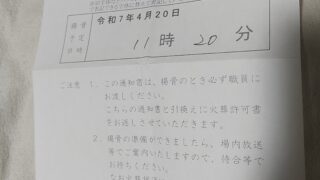 令和7年4月20日
揚骨
予定
日時
11時 20分
ご注意 1. この通知書は、揚骨のとき必ず職員に
お渡しください。
こちらの通知書と引換えに火葬許可書
をお返しさせていただきます。
2. 揚骨の準備ができましたら、場内放送
等でご案内いたしますので、待合等で
お待ちください。